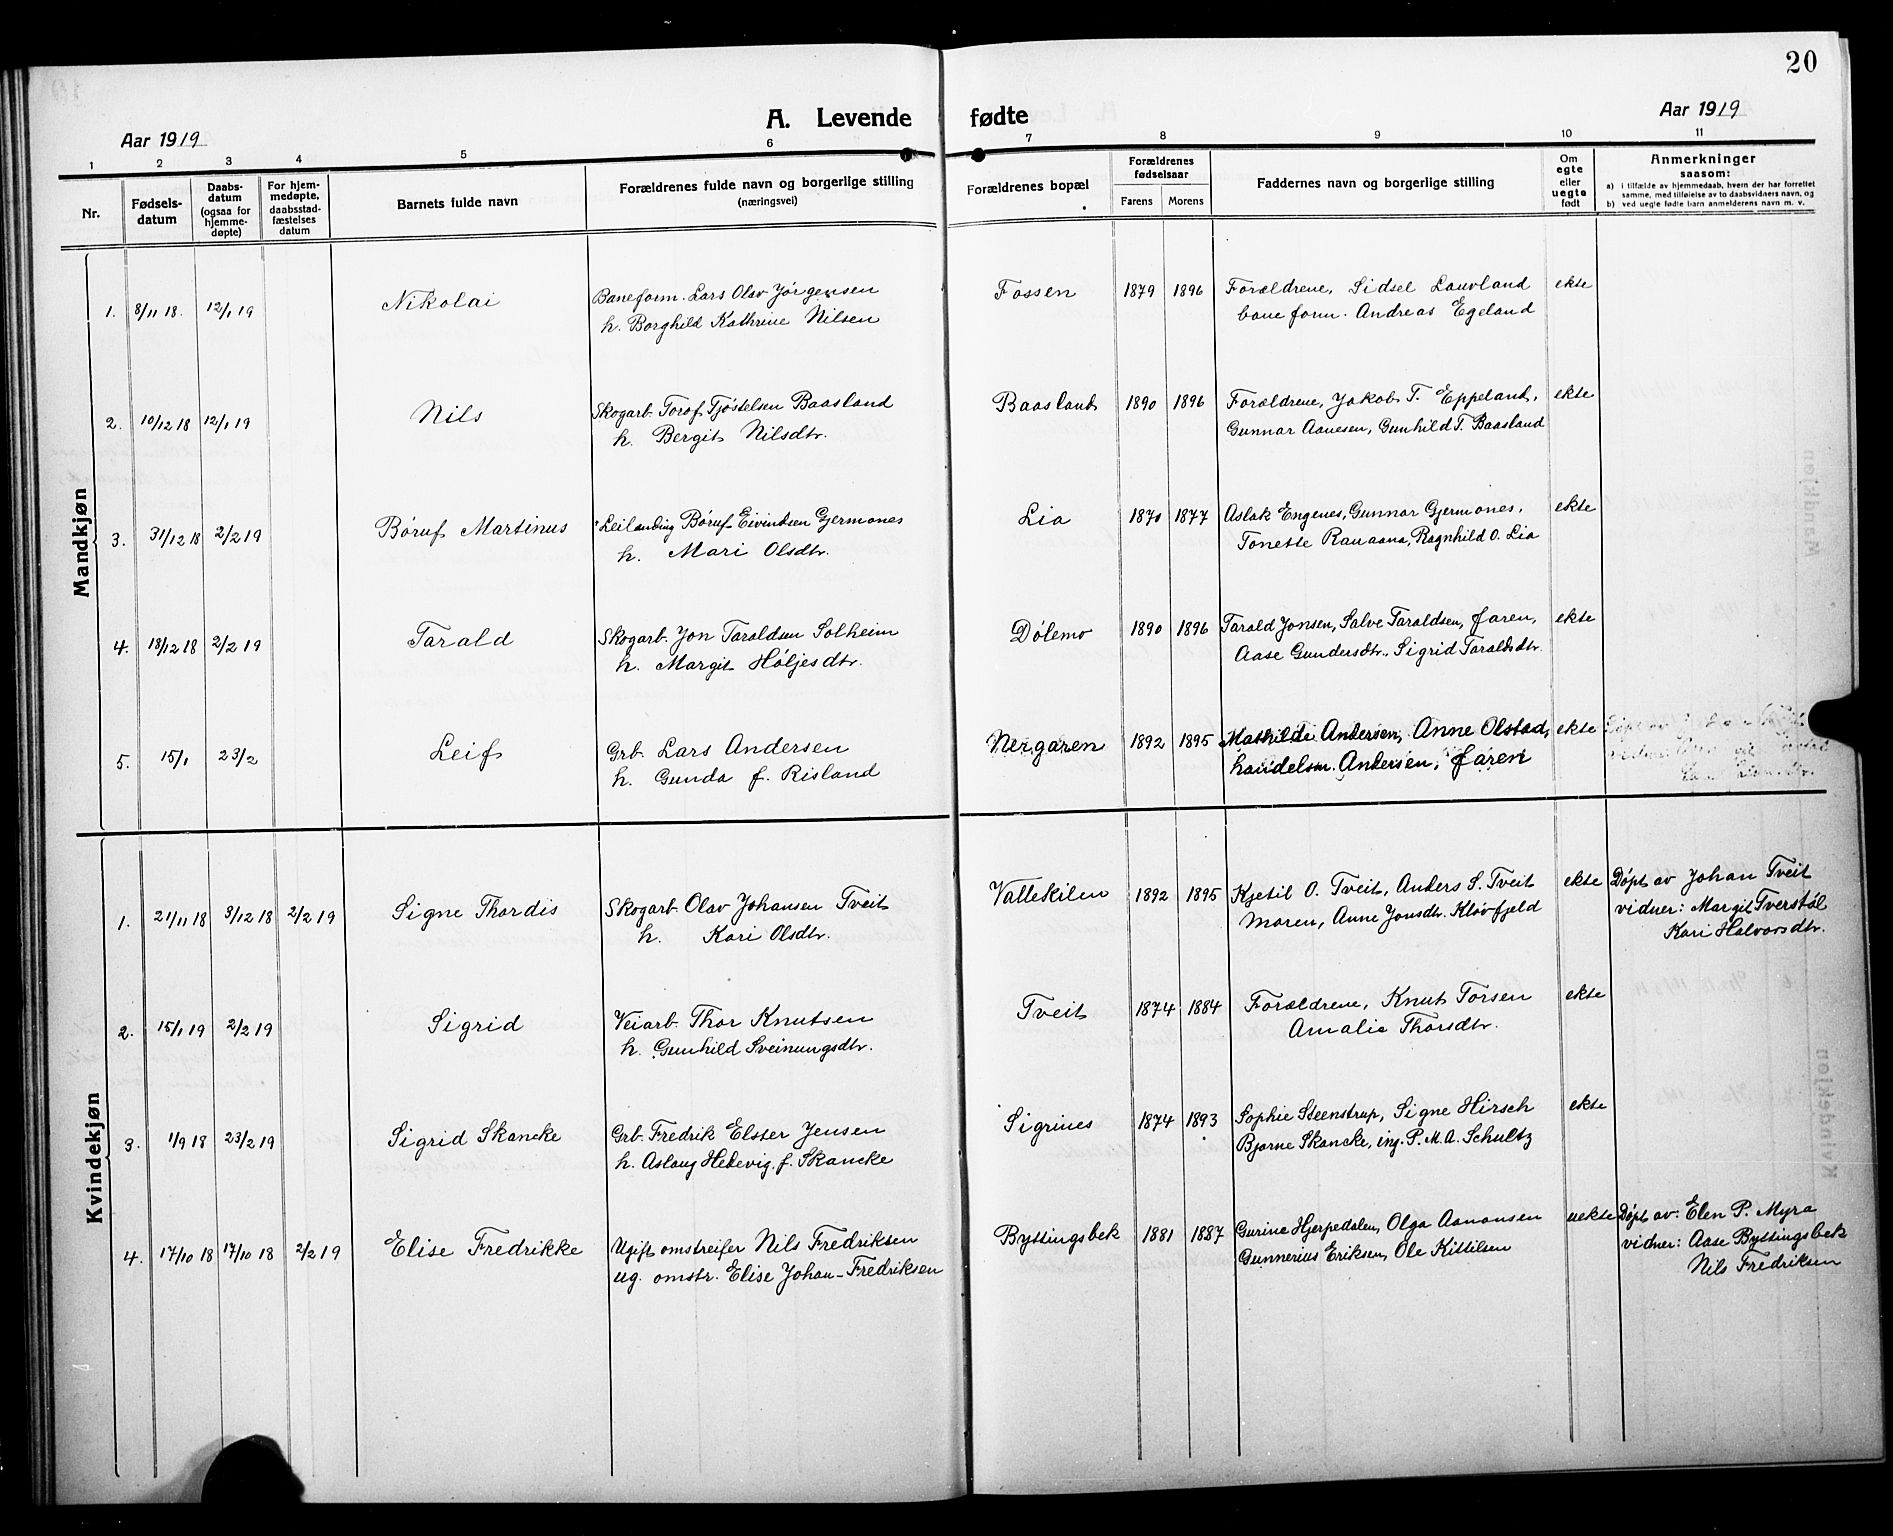 20
A. Levende fødte
Aar 1919
Aar 1919
1 2 3 4 5 6 7 8 9 10 11
Nr.
Fødsels-
datum
Daabs-
datum
(ogsaa for
hjemme-
døpte)
For hjem-
medøpte,
daabsstad-
fæstelses
datum
Barnets fulde navn
Forældrenes fulde navn og borgerlige stilling
(næringsvei)
Forældrenes bopæl
Forældrenes
fødselsaar
Farens Morens
Faddernes navn og borgerlige stilling
Om
egte
eller
uegte
født
Anmerkninger
saasom:
a) i tilfælde av hjemmedaab, hvem der har forrettet
samme, med tilføielse av to daabsvidners navn, og
b) ved uegte fødte barn anmelderens navn m. v.
Mandkjøn
1. 8/11 18. 12/1 19 Nikolai Baneform. Lars Olav Jørgensen Fossen 1879 1896 Forældrene, Sidsel Lauvland ekte
h. Borghild Kathrine Nilsen baneform. Andreas Egeland
2. 10/12 18 12/1 19 Nils Skogarb. Torof Tjøstelsen Baasland Baasland 1890 1896 Forældrene, Jakob T. Eppeland, ekte
h. Bergit Nilsdtr. Gunnar Aanesen, Gunhild T. Baasland
3. 31/12 18 2/2 19 Børuf Martinus Leilænding Børuf Eivindsen Gjermones Lia 1870 1877 Aslak Engenes, Gunnar Gjermones, ekte
h. Mari Olsdtr. Tonette Rauaana, Ragnhild O. Lia
4. 18/12 18 2/2 19 Tarald Skogarb. Jon Taraldsen Solheim Dølemo 1890 1896 Tarald Jonsen, Salve Taraldsen, Faren, ekte
h. Margit Høljesdtr. Aase Gundersdtr., Sigrid Taraldsdtr.
5. 15/1 23/2 Leif Grb. Lars Andersen Nergaren 1892 1895 Mathilde Andersen, Anne Olstad, ekte
h. Gunda f. Risland handelsm. Andersen, Faren
Kvindekjøn
1. 21/11 18 3/12 18 2/2 19 Signe Thordis Skogarb. Olav Johansen Tveit Vallekilen 1892 1895 Kjetil O. Tveit, Anders S. Tveit ekte Døpt av Johan Tveit
h. Kari Olsdtr. Moren, Anne Jonsdtr. Kløvfjeld vidner: Margit Tverstøl
Kari Halvorsdtr.
2. 15/1 19 2/2 19 Sigrid Veiarb. Thor Knutsen Tveit 1874 1884 Forældrene, Knut Torsen ekte
h. Gunhild Sveinungsdtr. Amalie Thorsdtr.
3. 1/9 18 23/2 19 Sigrid Skancke Grb. Fredrik Elster Jensen Sigrines 1874 1893 Sophie Steenstrup, Signe Hirsch ekte
h. Aslaug Hedevig f. Skancke Bjarne Skancke, ing. P. M. A. Schultz
4. 17/10 18 17/10 18 2/2 19 Elise Fredrikke Ugift omstreifer Nils Fredriksen Byttingsbek 1881 1887 Gurine Hjerpedalen, Olga Aanonsen uekte Døpt av: Elen P. Myra
ug. omstr. Elise Johan-Fredriksen Gunnerius Eriksen, Ole Kittilsen vidner: Aase Byttingsbek
Nils Fredriksen